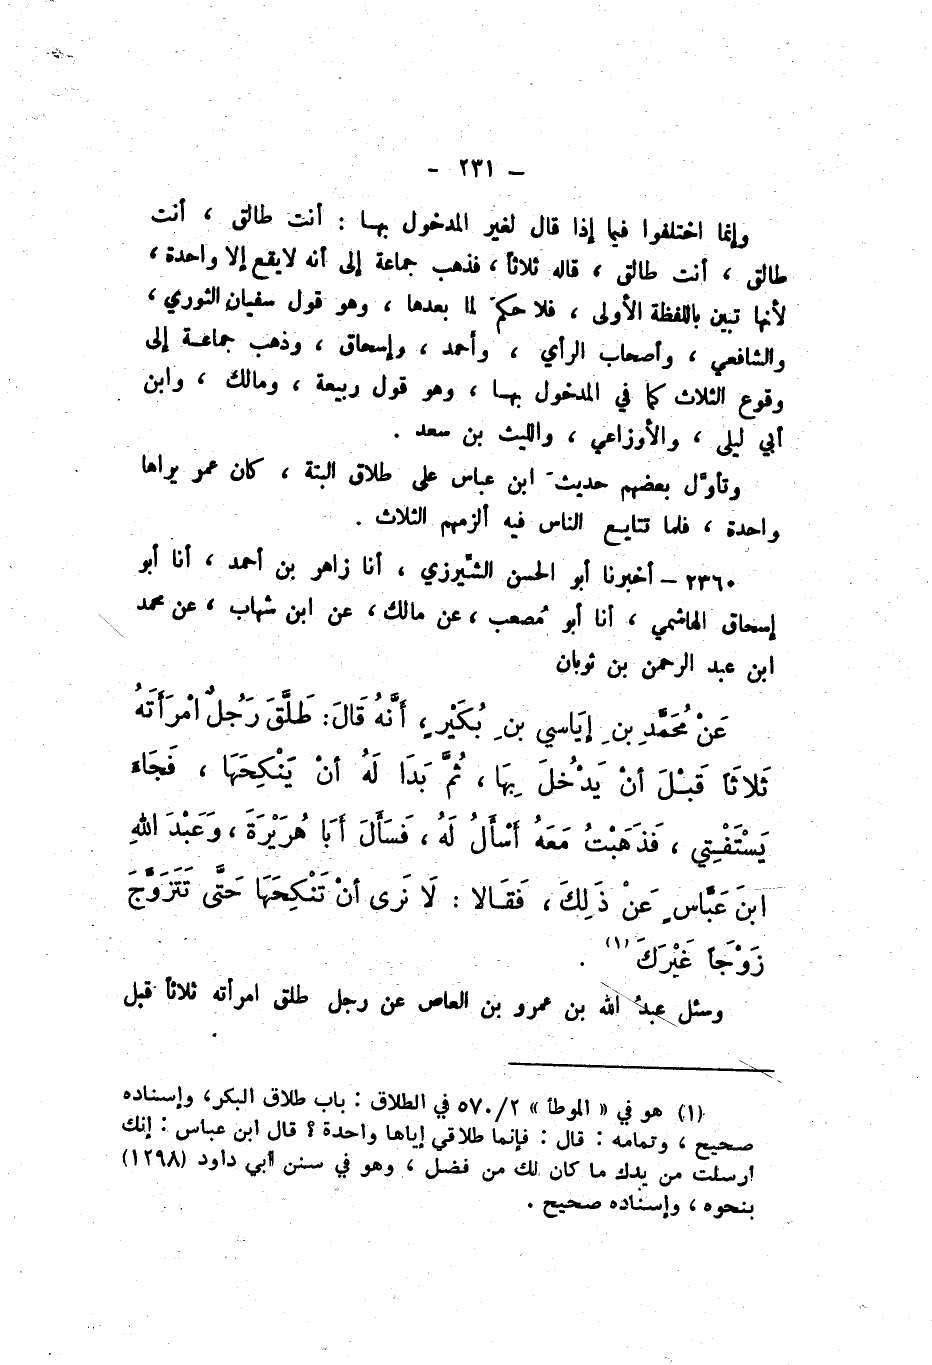 - ٢٣١ -
وإنما اختلفوا فيما إذا قال لغير المدخول بهـا : أنت طالق ، أنت
طالق ، أنت طالق ، قاله ثلاثاً ، فذهب جماعة إلى أنه لايقع إلا واحدة ،
لأنها تبين باللفظة الأولى ، فلا حكمَ لما بعدها ، وهو قول سفيان الثوري ،
والشافعي ، وأصحاب الرأي ، وأحمد ، وإسحاق ، وذهب جماعـة إلى
وقوع الثلاث كما في المدخول بهـا ، وهو قول ربيعة ، ومالك ، وابن
أبي ليلى ، والأوزاعي ، والليث بن سعد .
وتأوَّل بعضهم حديثَ ابن عباس على طلاق البتة ، كان عمر يراها
واحدة ، فلما تتايـع الناس فيه ألزمهم الثلاث .
٢٣٦٠ – أخبرنا أبو الحسن الشّيرزي ، أنا زاهر بن أحمد ، أنا أبو
إسحاق الهاشمي ، أنا أبو مُصعب ، عن مالك ، عن ابن شهاب ، عن محمد
ابن عبد الرحمن بن ثوبان
عَنْ مُحَمَّدِ بنِ إيَاسي بنِ بُكَيْرٍ ، أَنَّهُ قَالَ : طَلَّقَ رَجُلٌ امْرَأَتَهُ
ثَلاثَاً قَبْـلَ أنْ يَدْخُلَ بِهَا ، ثُمَّ بَدَا لَهُ أنْ يَنْكِحَهَا ، فَجَاءَ
يَسْتَفْـتِي ، فَذَهَبْتُ مَعَهُ أَسْأَلُ لَهُ ، فَسَأَلَ أَبَا هُرَيْرَةَ ، وَعَبْدَ اللهِ
ابنَ عَبَّاسٍ عَنْ ذَلِكَ ، فَقَـالا : لَا نَرى أنْ تَنْكِحَهَا حَتَّى تَتَزَوَّجَ
زَوْجَاً غَيْرَكَ (١) .
وسئل عبدُ الله بن عمرو بن العاص عن رجل طلق امرأته ثلاثاً قبل
(١) هو في « الموطأ » ٥٧٠/٢ في الطلاق : باب طلاق البكر ، وإسناده
صحيح ، وتمامه : قال : فإنما طلاقي إياها واحدة ؟ قال ابن عباس : إنك
أرسلت من يدك ما كان لك من فضل ، وهو في سنن أبي داود (١٢٩٨)
بنحوه ، وإسناده صحيح .